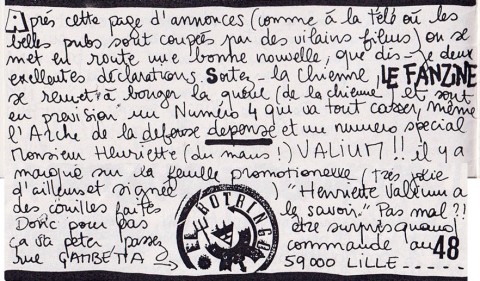 Après cette page d'annonces (comme à la télé où les
belles pubs sont coupées par des vilains films) on se
met en route une bonne nouvelle, que dis-je deux
excellentes déclarations. Sortez-la chienne, LE FANZINE
se remet à bouger la queue (de la chienne) et sont
en prévision un Numéro 4 qui va tout casser, même
l'Arche de la défense dépense et un numéro spécial
Monsieur Henriette (du mans!) VALIUM!! il y a
marqué sur la feuille promotionexxe (très jolie
d'ailleurs et signée ) "Henriette Valium a
des couilles faites le savoir." Pas mal?!
Donc pour pas être surpris quand
ça va péter, passez commande au 48
rue GAMBETTA → 59000 LILLE.....